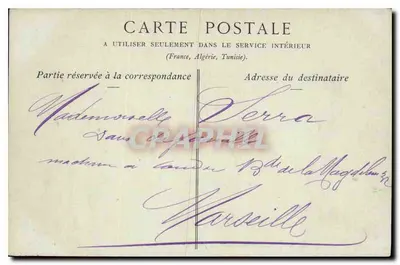 CARTE POSTALE
A UTILISER SEULEMENT DANS LE SERVICE INTÉRIEUR
(France, Algérie, Tunisie).
Partie réservée à la correspondance
Adresse du destinataire
Mademoiselle Serra
dans
machine a coudre Bd de la Magdeleine
Marseille
CARTE POSTALE